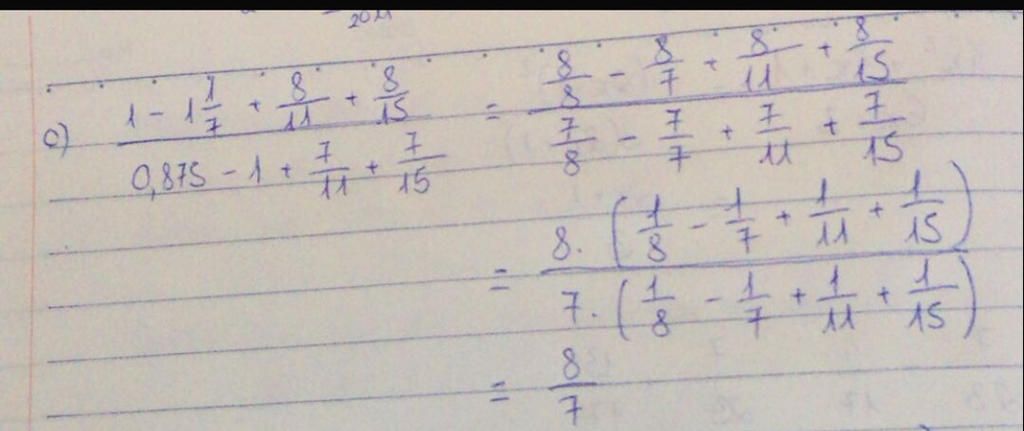 2011
c) \frac{1 - 1\frac{1}{7} + \frac{8}{11} + \frac{8}{15}}{0,875 - 1 + \frac{7}{11} + \frac{7}{15}} = \frac{\frac{8}{8} - \frac{8}{7} + \frac{8}{11} + \frac{8}{15}}{\frac{7}{8} - \frac{7}{7} + \frac{7}{11} + \frac{7}{15}}
= \frac{8 . (\frac{1}{8} - \frac{1}{7} + \frac{1}{11} + \frac{1}{15})}{7 . (\frac{1}{8} - \frac{1}{7} + \frac{1}{11} + \frac{1}{15})}
= \frac{8}{7}